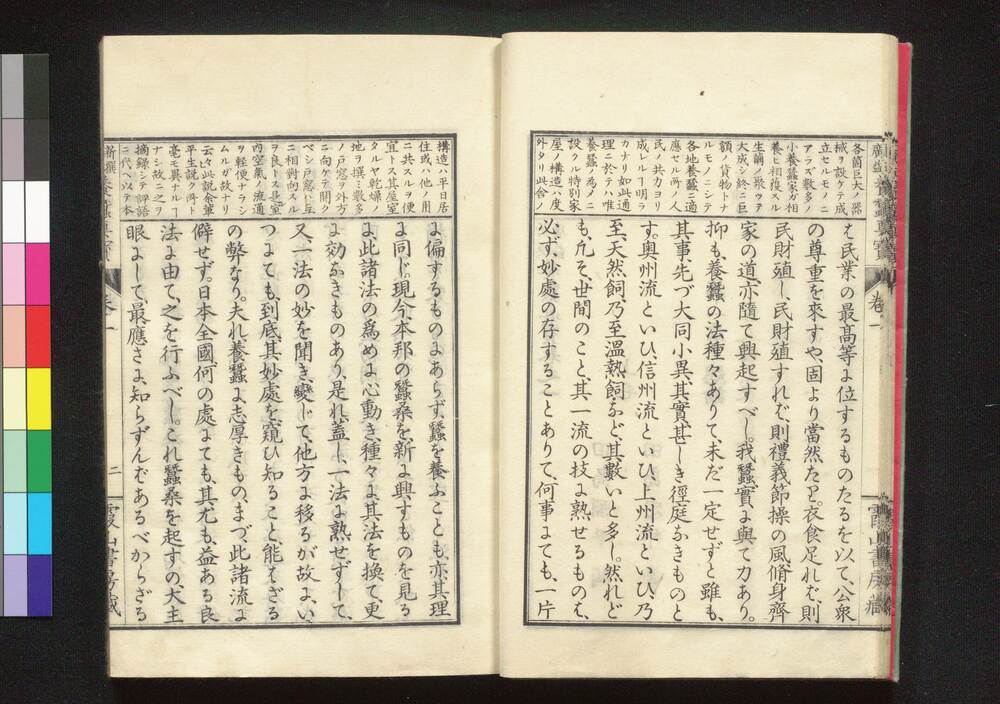 各箇巨大ノ器
械ヲ設ケテ成
立セルモノニ
アラズ數多ノ
小養蠶家ガ相
養ヒ相復スル
生繭ノ聚ッテ
大成シ終ニ巨
額ノ貨物トナ
ルモノニシテ
各地養蠶ニ適
應セル所ノ人
民ノ共力ヨリ
成レルヿ明ラ
カナリ如此道
理ニ於テハ唯
養蠶ノ爲メニ
設クル特別家
屋ノ構造ハ度
外タリ此舍ノ
は民業の最髙等に位するものたるを以て、公衆
の尊重を來すや、固より當然たり。衣食足れば、則
民財殖し、民財殖すれば、則禮義節操の風、脩身齊
家の道、亦隨て興起すべし。我蠶實に與て力あり。
抑も、養蠶の法種々ありて、未だ一定せずと雖も、
其事、先づ大同小異、其實、甚しき徑庭なきものと
す。奥州流といひ、信州流といひ、上州流といひ、乃
至、天然飼乃至温熱飼など、其數いと多し。然れど
も、凡そ、世間のこと、其一流の技に熟せるものは、
必ず、妙處の存することありて、何事にても、一片
卷一
構造ハ平日居
住或ハ他ノ用
ニ共スルヲ便
宜トス其屋室
地ヲ撰ミ數多
ノ戸窓ヲ外方
ニ向ケテ開ク
ベシ戸窓ハ互
ニ相對向スル
ヲ良トス是室
内空氣ノ流通
ヲ輕便ナラシ
ムルガ故ナリ
云々此說余輩
平生說ク所ト
毫モ異ナルヿ
ナシ故ニ之ヲ
摘錄シテ評語
ニ代ヘ以テ本
に偏するものにあらず、蠶を養ふことも、亦、其理
に同じ。現今、本邦の蠶桑を新に興すものを見る
に、此諸法の爲めに心動き、種々に、其法を換て、更
に効なきものあり、是れ、蓋し、一法に熟せずして、
又、一法の妙を聞き、變じて、他方に移るが故に、い
つにても、到底、其妙處を窺ひ知ること、能はざる
の弊なり。夫れ養蠶に志厚きもの、まづ、此諸流に
僻せず。日本全國、何の處にても、其尤も益ある良
法に由て、之を行ふべし。これ蠶桑を起すの、大主
眼にして、最應さに、知らずんばあるべからざる
二